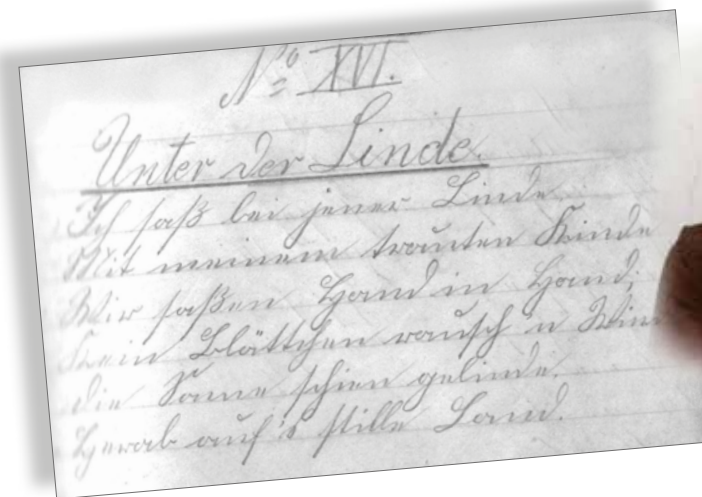 No XVI.
Unter der Linde.
Ich saß bei jener Linde
Mit meinem trauten Kinde
Wir saßen Hand in Hand;
Kein Blättchen rausch u Win
die Sonne schien gelinde.
Herab auf's stille Land.